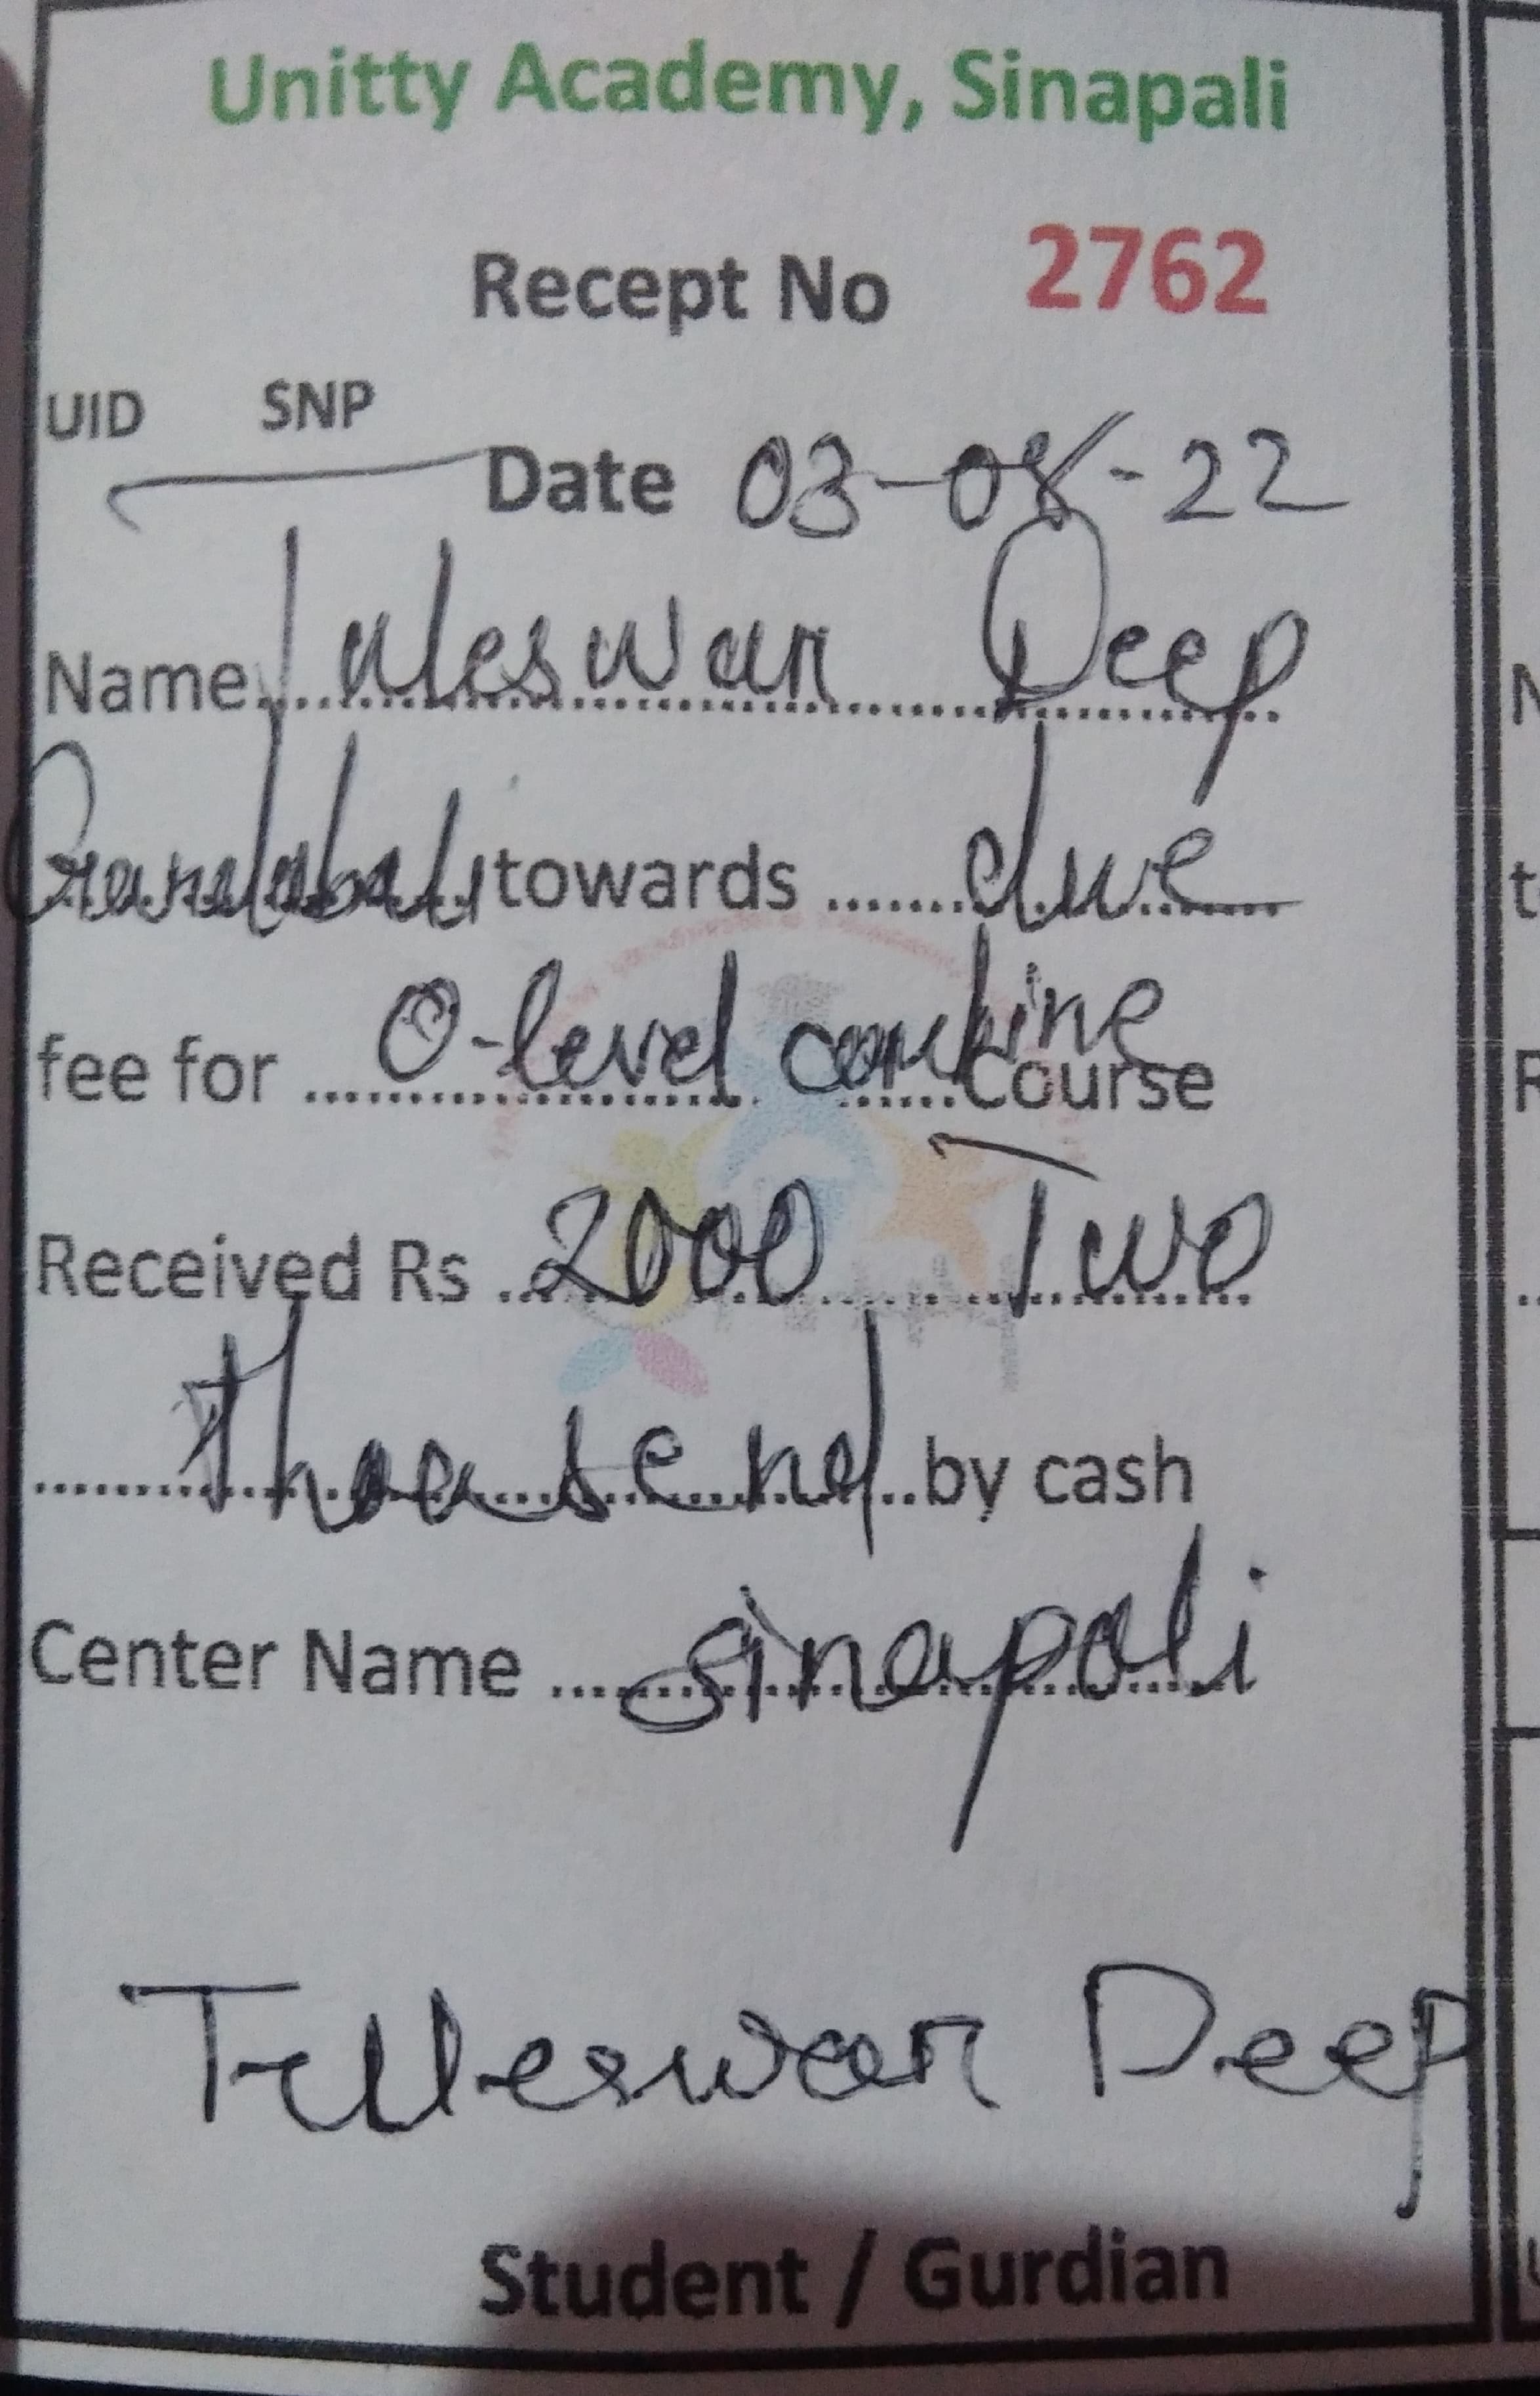 Unitty Academy, Sinapali
Recept No 2762
UID SNP
Date 03-08-22
Name Tuleswar Deep
towards ........due........
fee for ....O-level combine Course
Received Rs ..2000 Two
....thousend....by cash
Center Name ....sinapali
Tuleswar Deep
Student / Gurdian